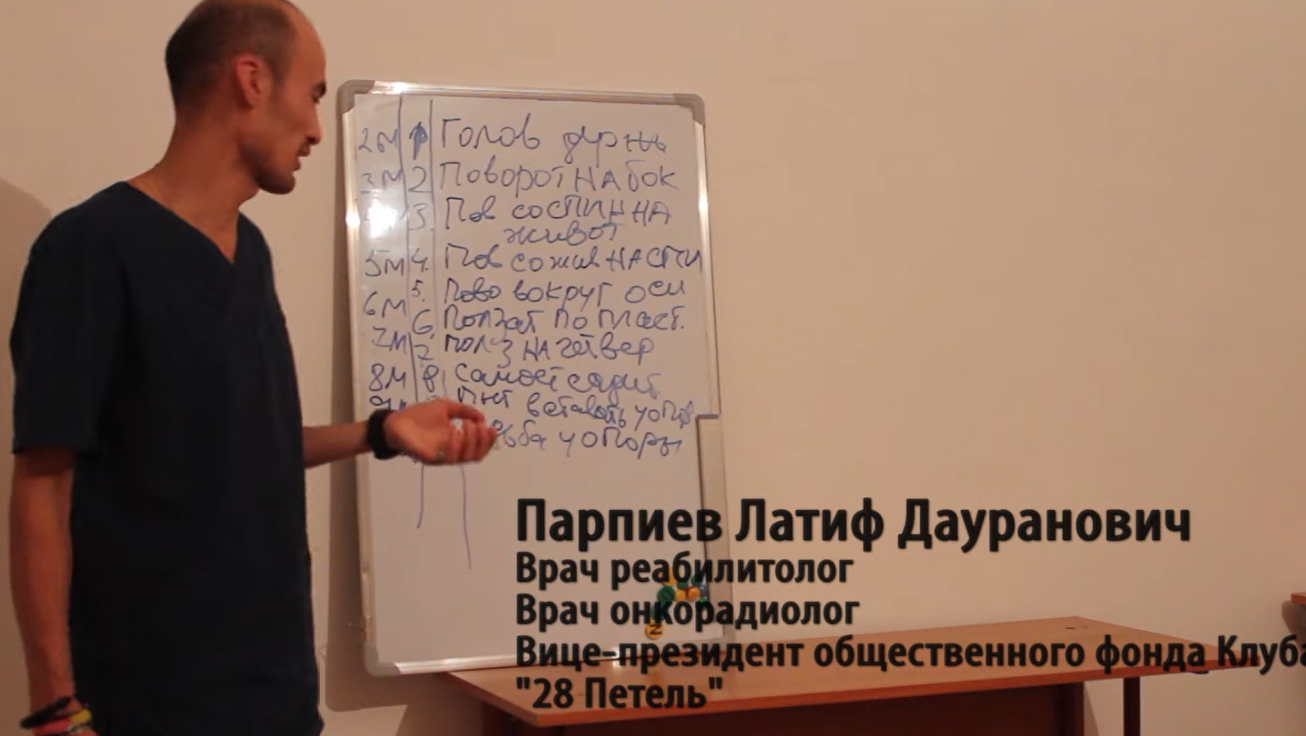 2м 1 Голов держ
3м 2 Поворот на бок
3. Пов со спин на
живот
5м 4. Пов со жив на спи
6м 5. Пово вокруг оси
6. Ползат по пласт.
7м 7 полз на четвер
8м 8 самост садит
вставать у опор
ьба у опоры
Парпиев Латиф Дауранович
Врач реабилитолог
Врач онкорадиолог
Вице-президент общественного фонда Клуба
"28 Петель"